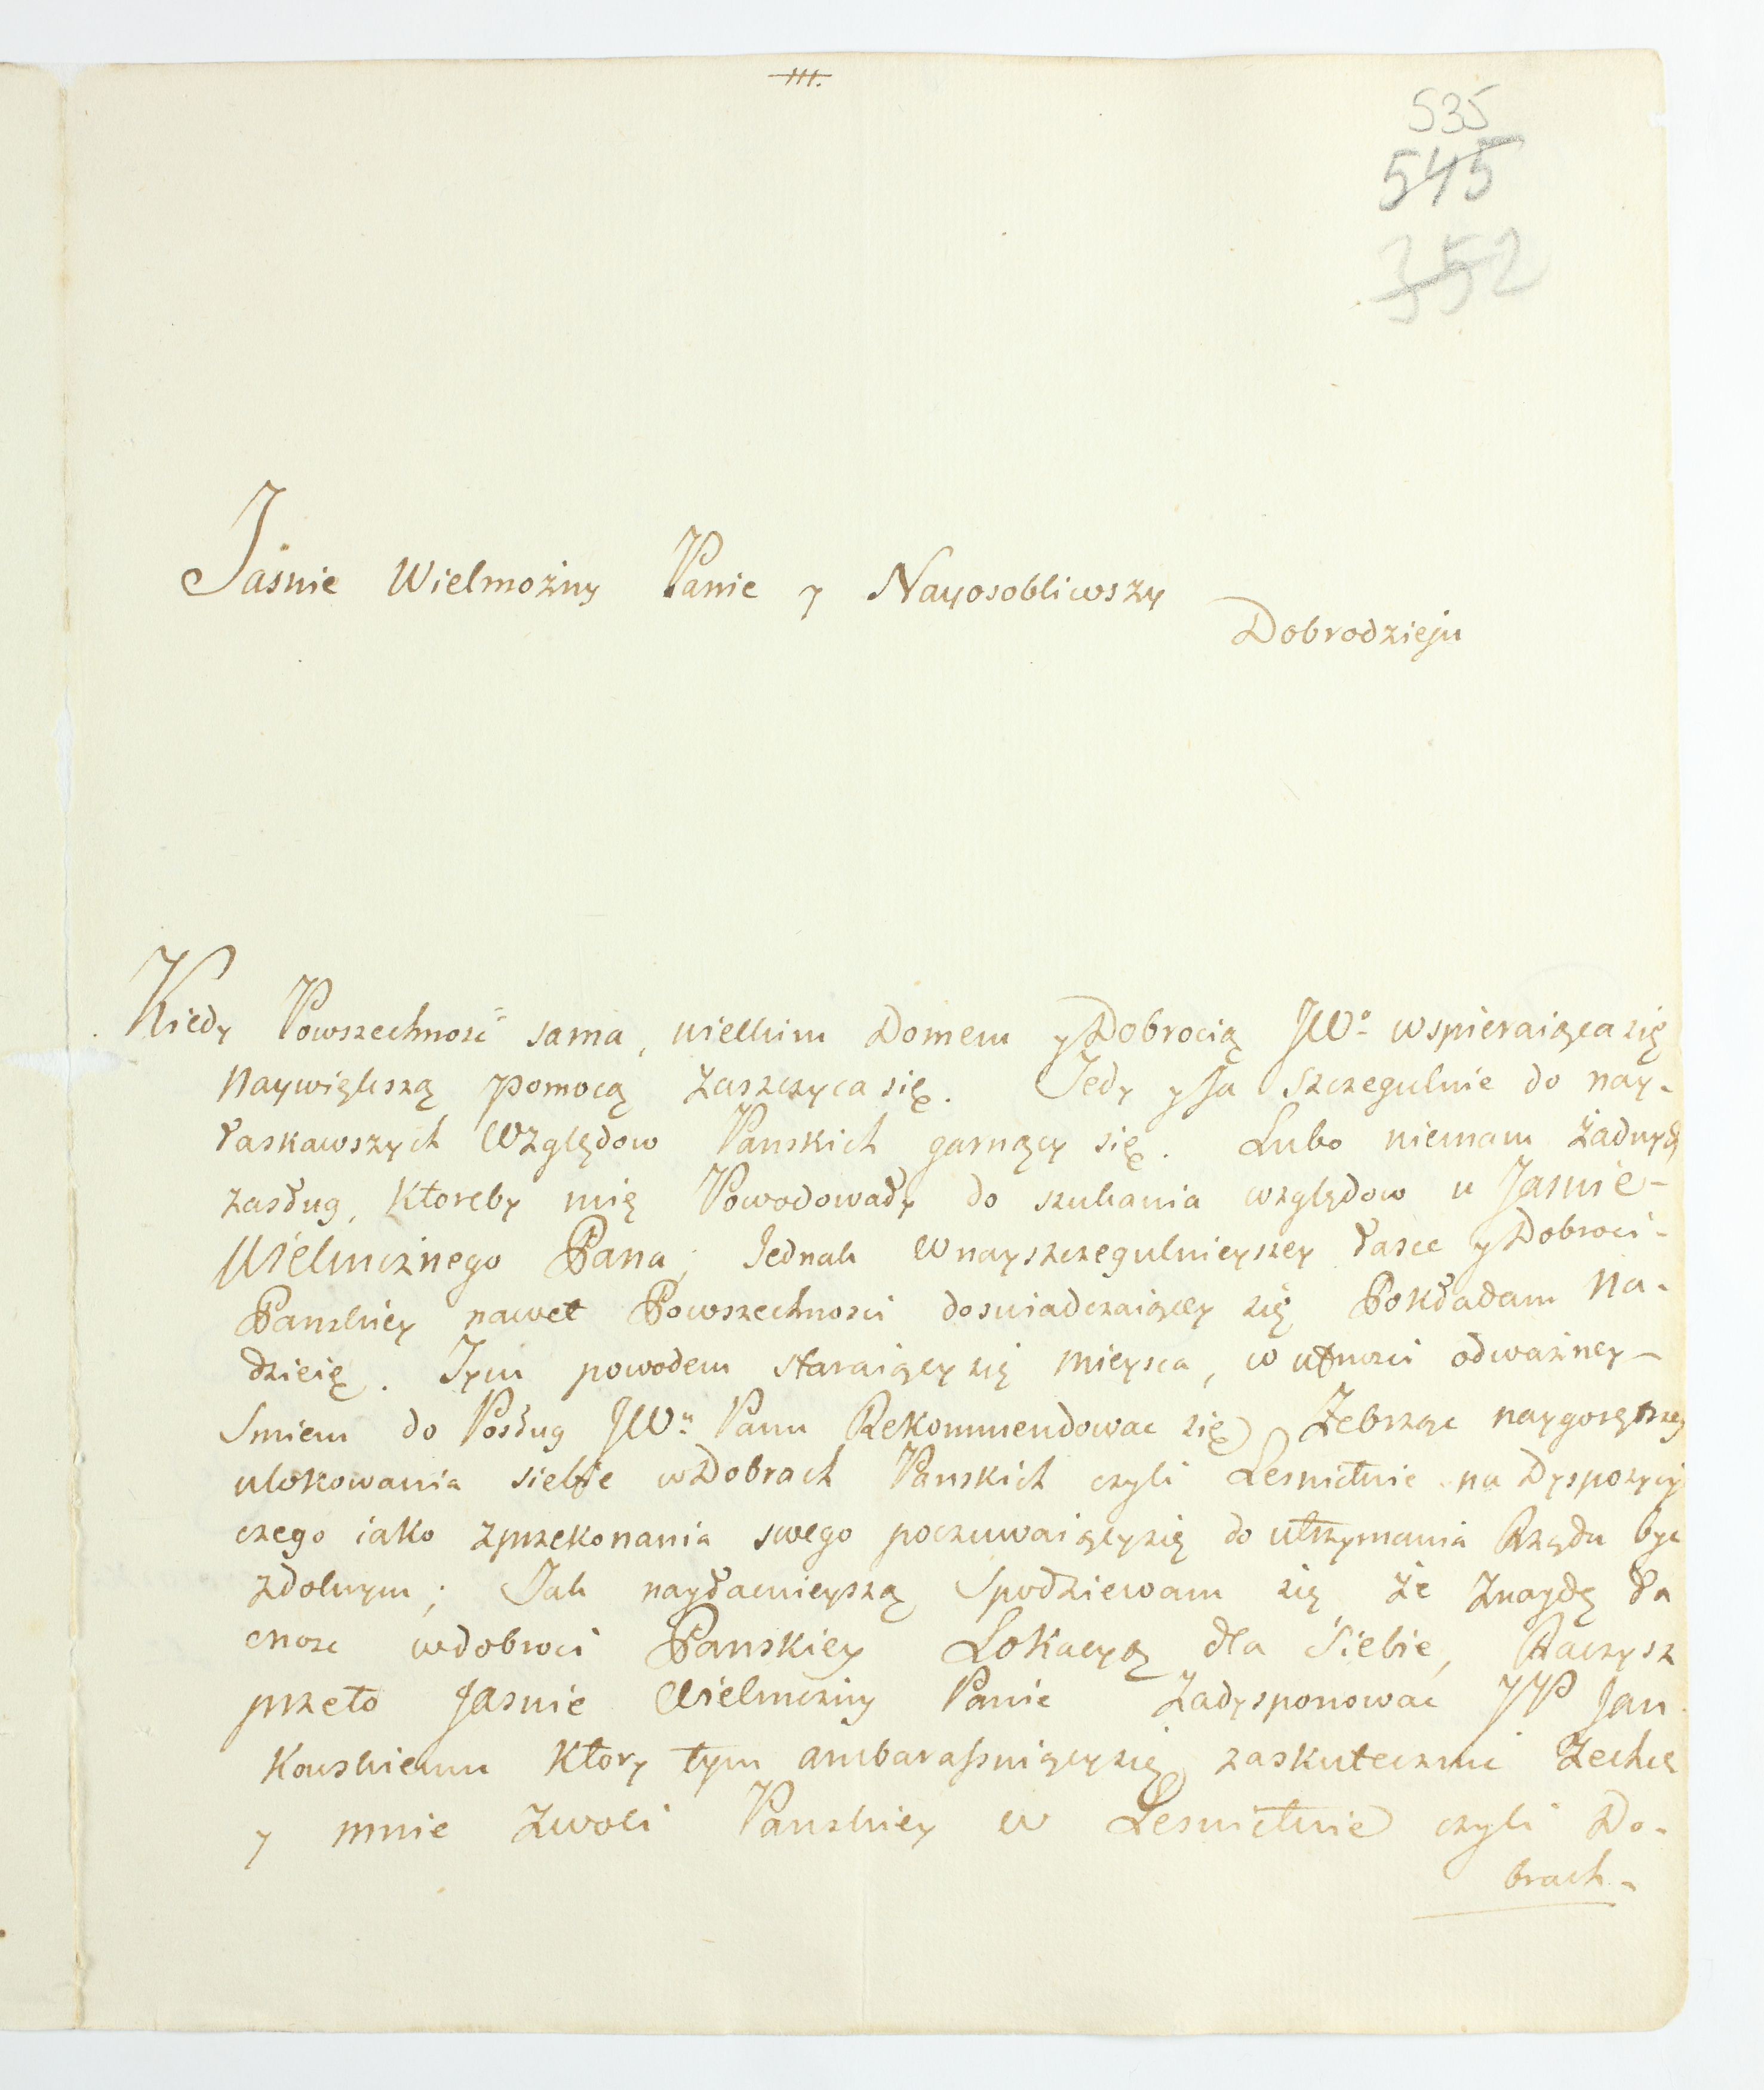 III.
535
545
352
Jasnie Wielmożny Panie y Nayosobliwszy
Dobrodzieju
Kiedy Powszechność sama, wielkim Domem y Dobrocią JWo wspieraiąca się
Naywiększą pomocą zaszczyca się. Tedy y Ja Szczegulnie do nay-
łaskawszych Względow Panskich garnący się. Lubo niemam żadnych
zasług, ktoreby mię Powodowały do szukania względow u Jasnie-
Wielmożnego Pana, Jednak w nayszczegulnieyszey łasce y Dobroci-
Panskiey nawet Powszechnosci doswiadczaiącey się Pokładam Na-
dzieię. Tym powodem staraiący się mieysca, w ufnosci odważney-
Smiem do Posług JWu Panu Rekommendowac się Żebrząc naygoręTszey
ulokowania siebie w Dobrach Panskich czyli Lesnictwie na Dyspozycyi
czego iako z przekonania swego poczuwaiący się do utrzymania Rządu byc
zdolnym; Tak nayłacnieyszą Spodziewam się że znaydę ła
cnosc w dobroci Panskiey Lokacyą dla Siebie, Raczysz
przeto Jasnie Wielmożny Panie zadysponowac JP Jan
Kowskiemu Ktory tym ambarassuiący się zaskutecznic Zechce
y mnie z woli Panskiey w Lesnictwie czyli Do-
brach-